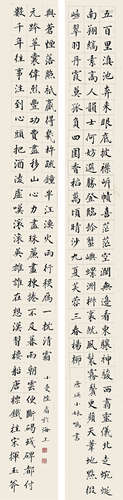 五百里滇池奔來眼底披襟岸幘喜茫茫空闊無邊看東驤神駿西翥靈儀北走蜿蜒
南翔縞素高人韻士何妨選勝登臨趁蟹嶼螺洲梳裹就風鬟霧鬢更蘋天葦地點
綴些翠羽丹霞莫孤負四圍香稻萬頃晴沙九夏芙蓉三春楊柳
數千年往事注到心頭把酒凌虛嘆滾滾英雄誰在想漢習樓船唐標鐵柱宋揮玉斧
元跨革囊偉烈豐功費盡移山心力儘珠簾畫棟捲不及暮雨朝雲便斷碣殘碑都付
與蒼煙落照只贏得幾杵疏鐘半江漁火兩行秋雁一枕清霜